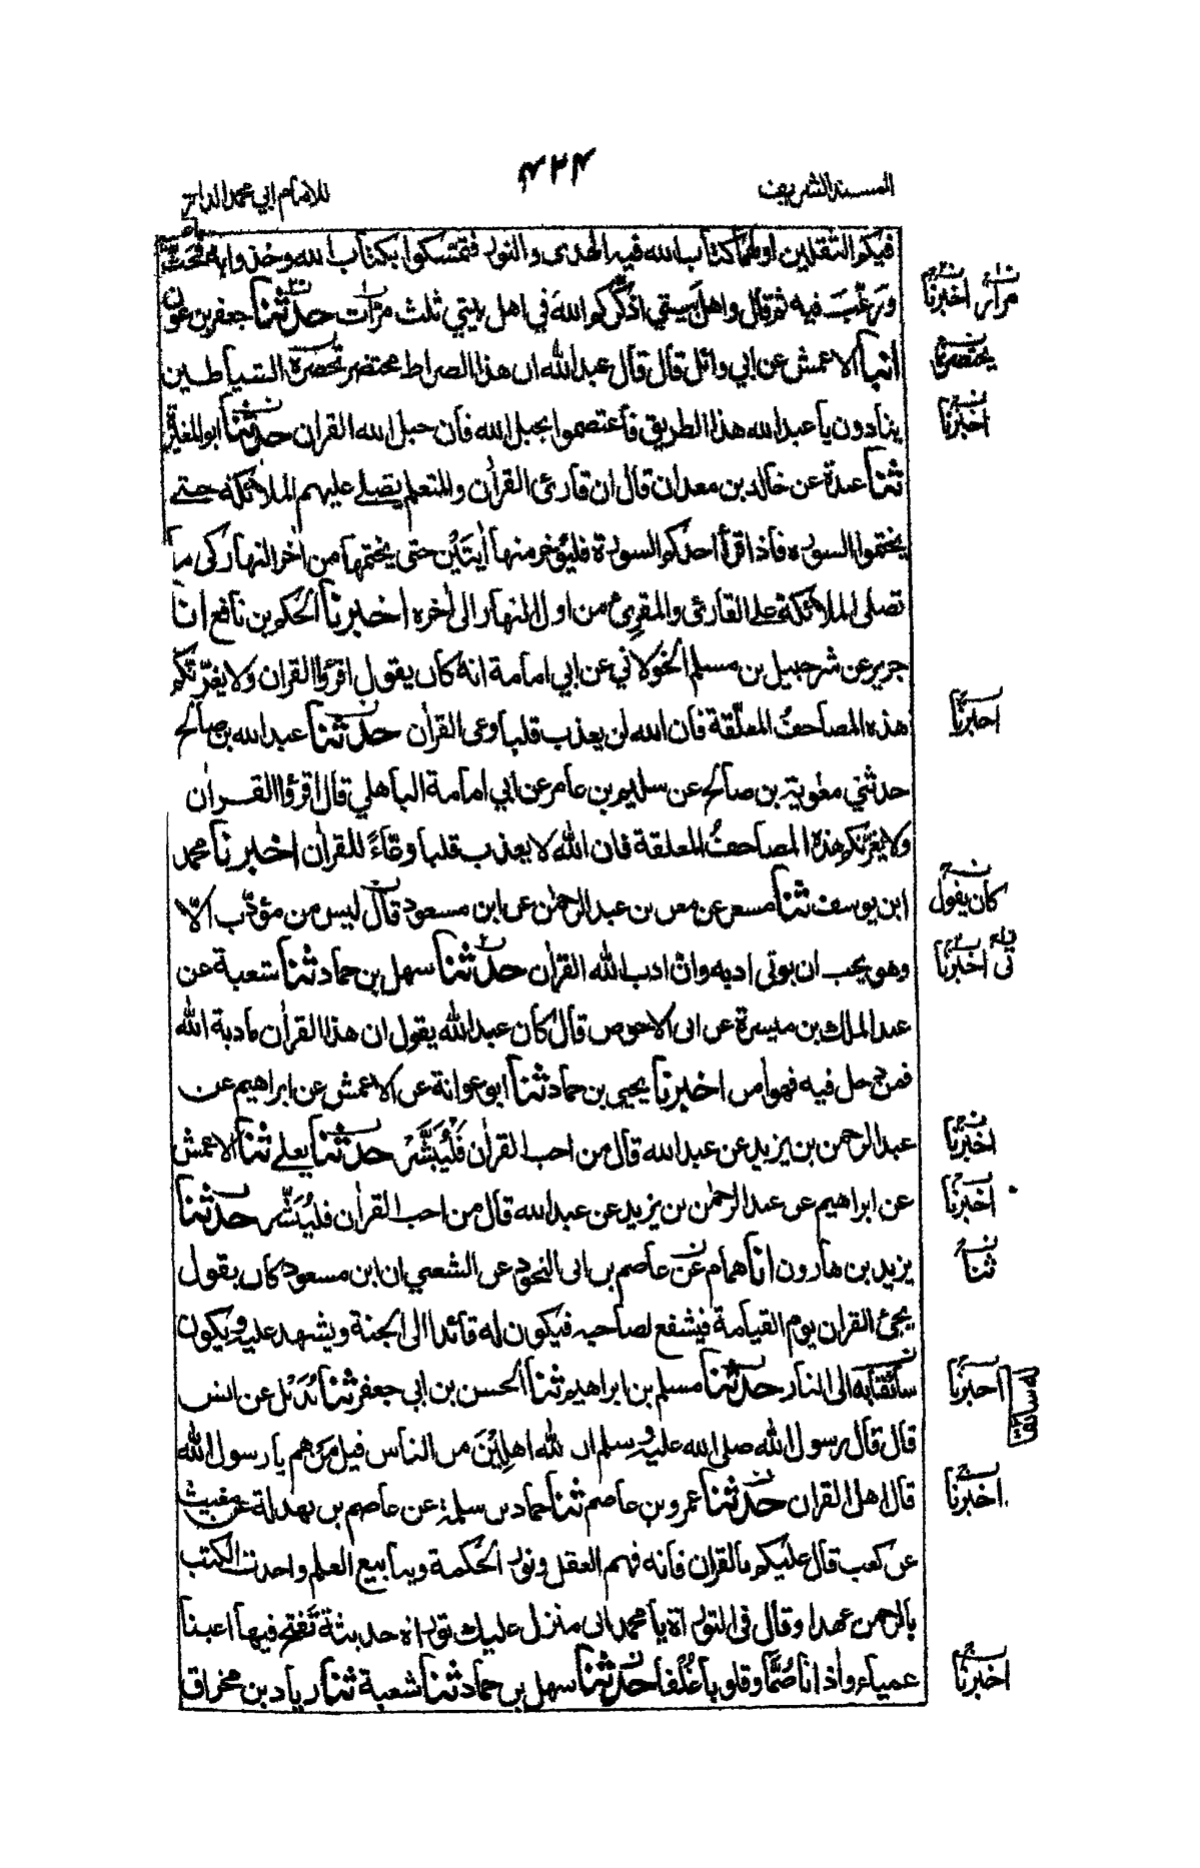 المسند الشريف
٤٢٤
للامام ابي محمد الدارمي
فيكم الثقلين اولهما كتاب الله فيه الهدى والنور فتمسكوا بكتاب الله وخذوا به فحث
ورغب فيه ثم قال واهل بيتي اذكركم الله في اهل بيتي ثلث مرات حدثنا جعفر بن عون
انبا الاعمش عن ابي وائل قال قال عبد الله ان هذا الصراط محتضر تحضره الشياطين
ينادون يا عبد الله هذا الطريق فاعتصموا بحبل الله فان حبل الله القران حدثنا ابو المغيرة
ثنا عبدة عن خالد بن معدان قال ان قارئ القرأن والمتعلم يصلي عليهم الملائكة حتى
يختموا السورة فاذا قرأ احدكم السورة فليؤخر منها أيتين حتى يختمها من اخر النهار كي ما
تصلى الملائكة على القارئ والمقرئ من اول النهار الى أخره اخبرنا الحكم بن نافع انا
جرير عن شرحبيل بن مسلم الخولاني عن ابي امامة انه كان يقول اقرؤا القران ولا يغرنكم
هذه المصاحف المعلقة فان الله لن يعذب قلبا وعى القرأن حدثنا عبد الله بن صالح
حدثني معوية بن صالح عن سليم بن عامر عن ابي امامة الباهلي قال اقرؤا القرأن
ولا يغرنكم هذه المصاحف المعلقة فان الله لا يعذب قلبا وعاءً للقرأن اخبرنا محمد
ابن يوسف ثنا مسعر عن معن بن عبد الرحمن عن ابن مسعود قال ليس من مؤدب الا
وهو يحب ان يوتى ادبه وان ادب الله القرأن حدثنا سهل بن حماد ثنا شعبة عن
عبد الملك بن ميسرة عن ابى الاحوص قال كان عبد الله يقول ان هذا القرأن مادبة الله
فمن دخل فيه فهو امن اخبرنا يحيى بن حماد ثنا ابو عوانة عن الاعمش عن ابراهيم عن
عبد الرحمن بن يزيد عن عبد الله قال من احب القرأن فليبشر حدثنا يعلى ثنا الاعمش
عن ابراهيم عن عبد الرحمن بن يزيد عن عبد الله قال من احب القرأن فليبشر حدثنا
يزيد بن هارون انا همام عن عاصم بن ابى النجود عن الشعبي ان ابن مسعود كان يقول
يجئ القران يوم القيامة فيشفع لصاحبه فيكون له قائدا الى الجنة ويشهد عليه ويكون
سائقا به الى النار حدثنا مسلم بن ابراهيم ثنا الحسن بن ابي جعفر ثنا بديل عن انس
قال قال رسول الله صلى الله عليه وسلم ان لله اهلين من الناس قيل من هم يا رسول الله
قال اهل القران حدثنا عمرو بن عاصم ثنا حماد بن سلمة عن عاصم بن بهدلة عن مغيث
عن كعب قال عليكم بالقران فانه فهم العقل ونور الحكمة وينابيع العلم واحدث الكتب
بالرحمن عهدا وقال في التوراة يا محمد انى منزل عليك توراة حديثة تفتح فيها اعينا
عمياء واذانا صما وقلوبا غلفا حدثنا سهل بن حماد ثنا شعبة ثنا زياد بن مخراق
مرار اخبرنا
يحتضره
اخبرنا
اخبرنا
كان يقول
اخبرنا
اخبرنا
اخبرنا
ثنا
اخبرنا
له سائقا
اخبرنا
اخبرنا